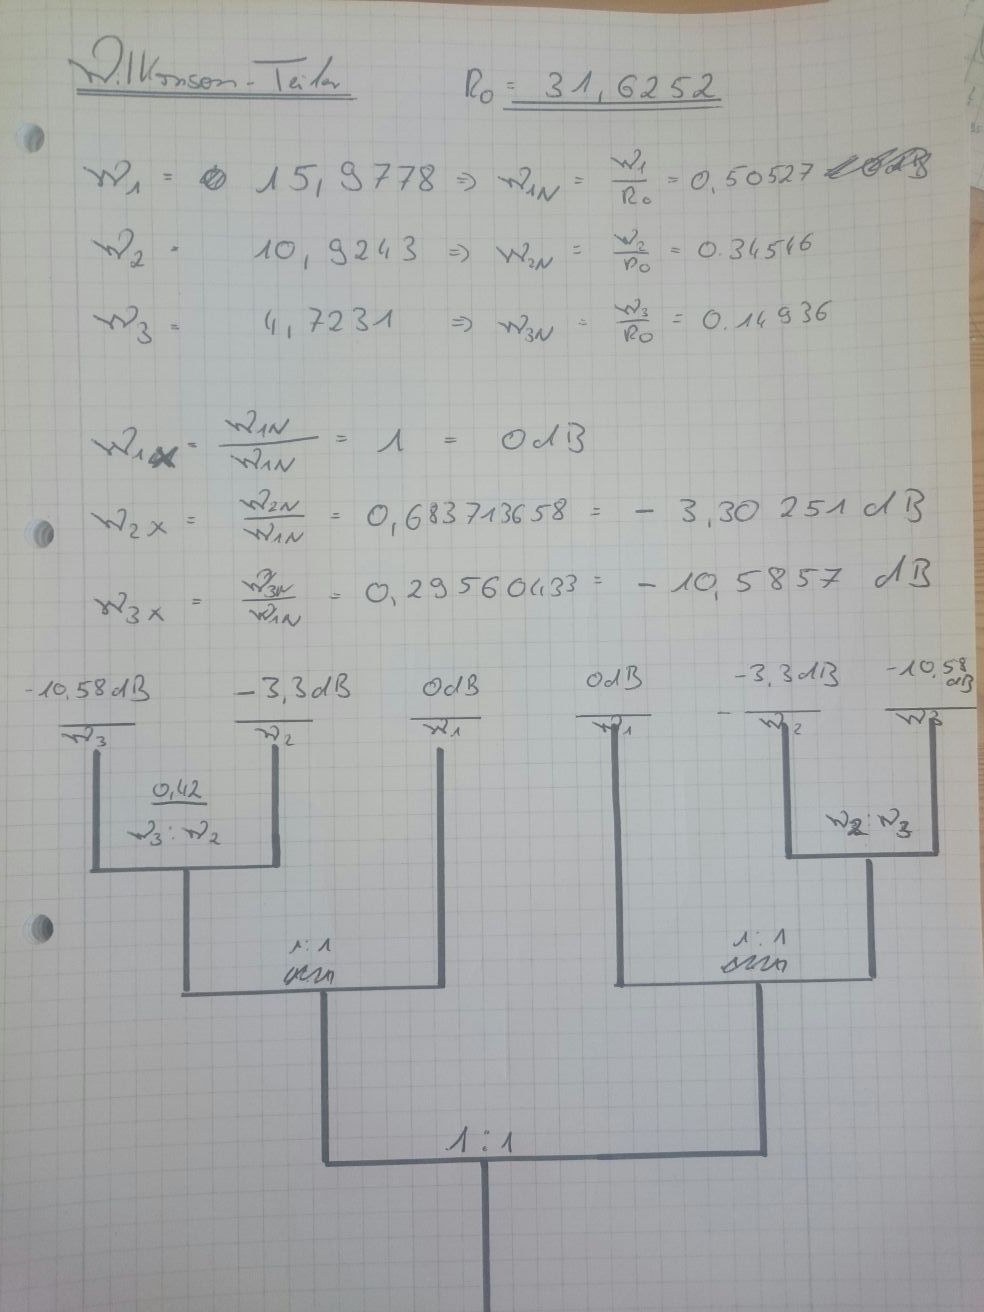 Wilkinson-Teiler R0 = 31,6252
W1 = 15,9778 => W1N = W1/R0 = 0,50527
W2 = 10,9243 => W2N = W2/R0 = 0.34546
W3 = 4,7231 => W3N = W3/R0 = 0.14936
W1x = W1N/W1N = 1 = 0dB
W2x = W2N/W1N = 0,683713658 = -3,30251 dB
W3x = W3N/W1N = 0,29560433 = -10,5857 dB
-10,58dB -3,3dB 0dB 0dB -3,3dB -10,58 dB
W3 W2 W1 W1 W2 W3
0,42
W3:W2 W2:W3
1:1 1:1
1:1